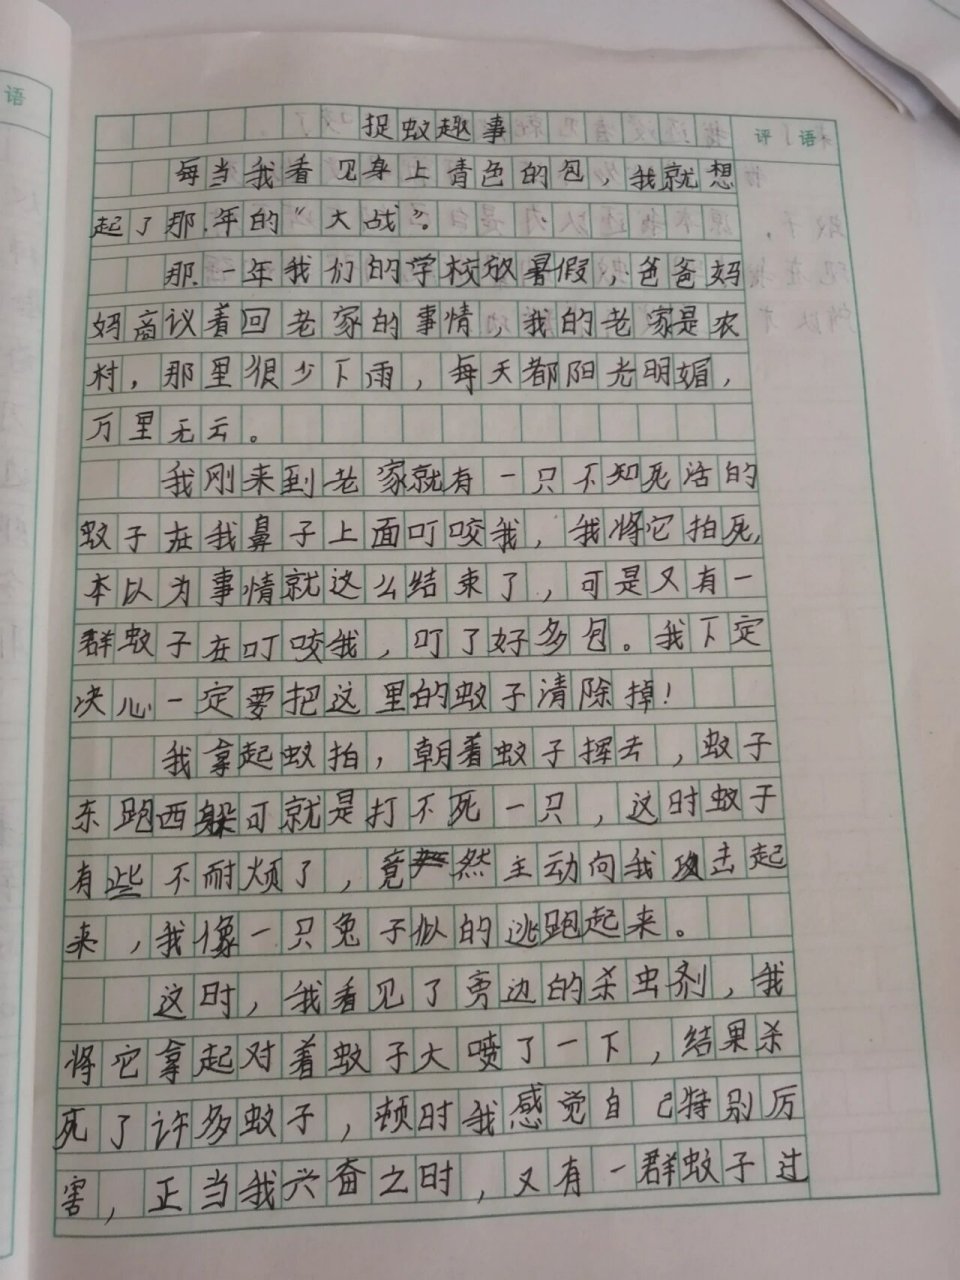 语
评语
捉蚊趣事
每当我看见身上青色的包，我就想
起了那年的“大战”。
那一年我们的学校放暑假，爸爸妈
妈商议着回老家的事情，我的老家是农
村，那里很少下雨，每天都阳光明媚，
万里无云。
我刚来到老家就有一只不知死活的
蚊子在我鼻子上面叮咬我，我将它拍死，
本以为事情就这么结束了，可是又有一
群蚊子在叮咬我，叮了好多包。我下定
决心一定要把这里的蚊子清除掉！
我拿起蚊拍，朝着蚊子挥去，蚊子
东跑西躲可就是打不死一只，这时蚊子
有些不耐烦了，竟然主动向我攻击起
来，我像一只兔子似的逃跑起来。
这时，我看见了旁边的杀虫剂，我
将它拿起对着蚊子大喷了一下，结果杀
死了许多蚊子，顿时我感觉自己特别厉
害，正当我兴奋之时，又有一群蚊子过